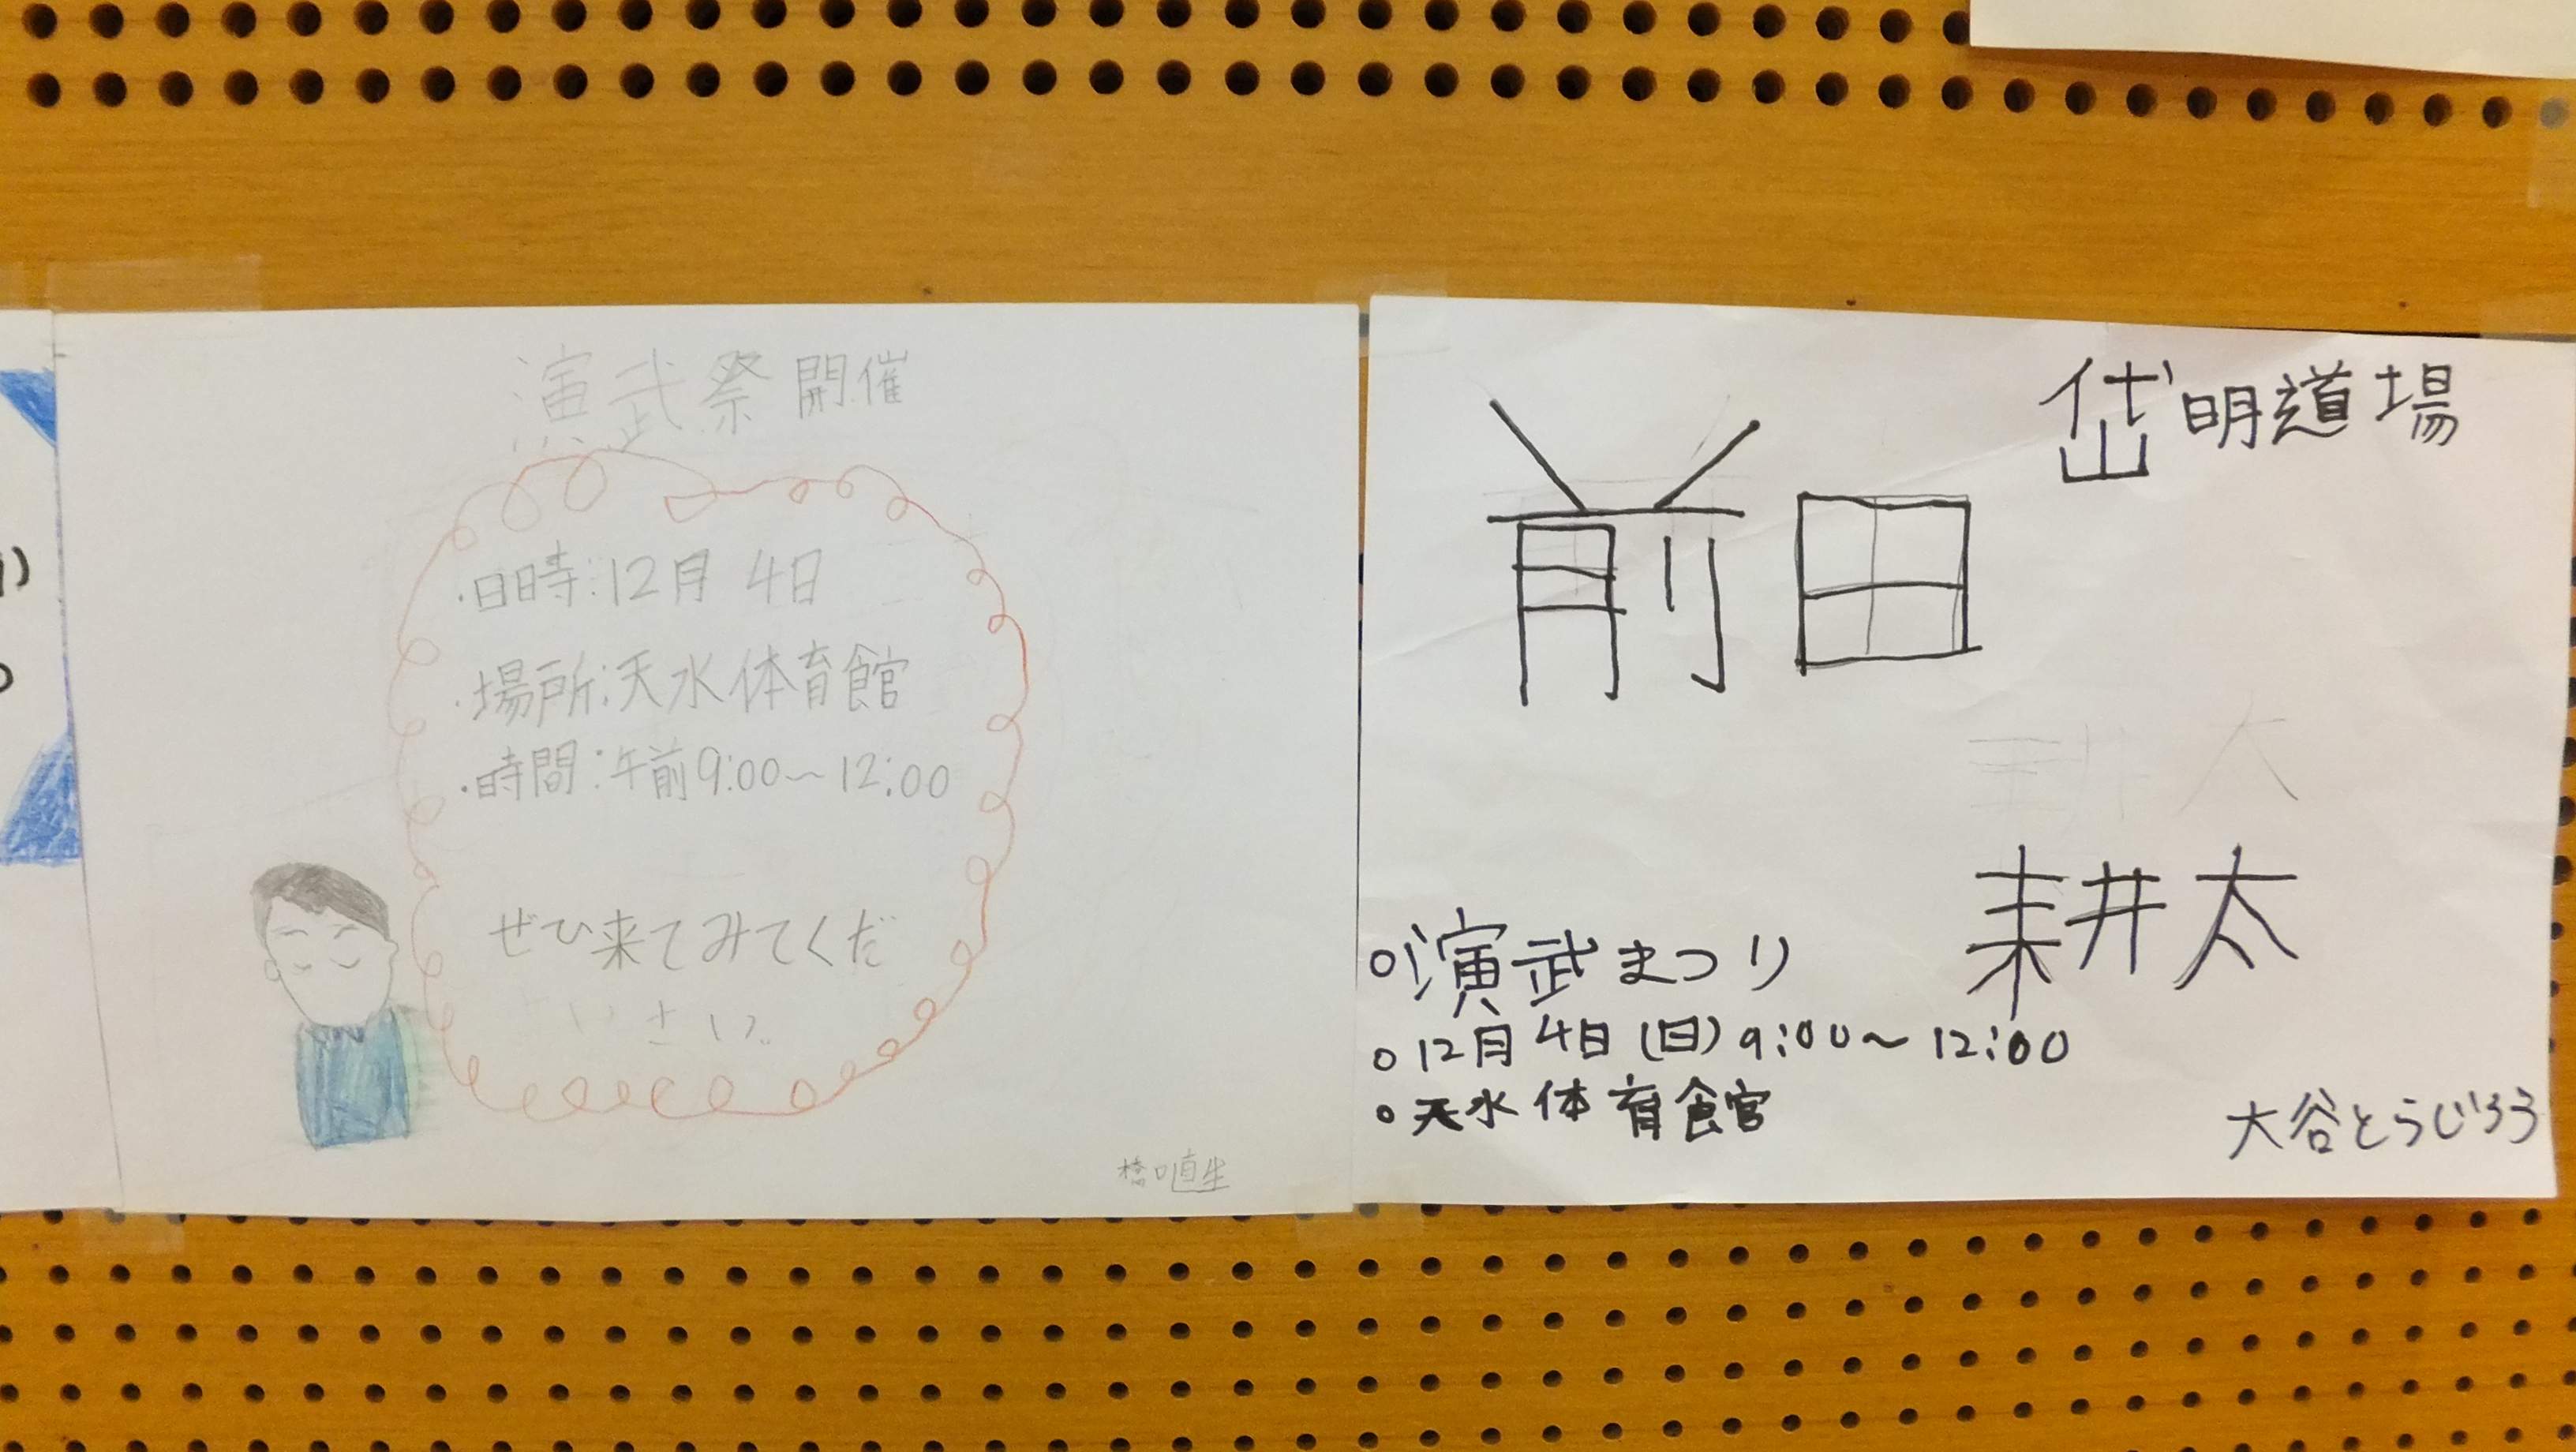 演武祭開催
・日時:12月 4日
・場所:天水体育館
・時間:午前9:00〜12:00
ぜひ来てみてくだ
さい。
橋口直生
岱明道場
前田
耕太
○演武まつり
○12月4日(日)9:00〜12:00
○天水体育館
大谷とらじろう